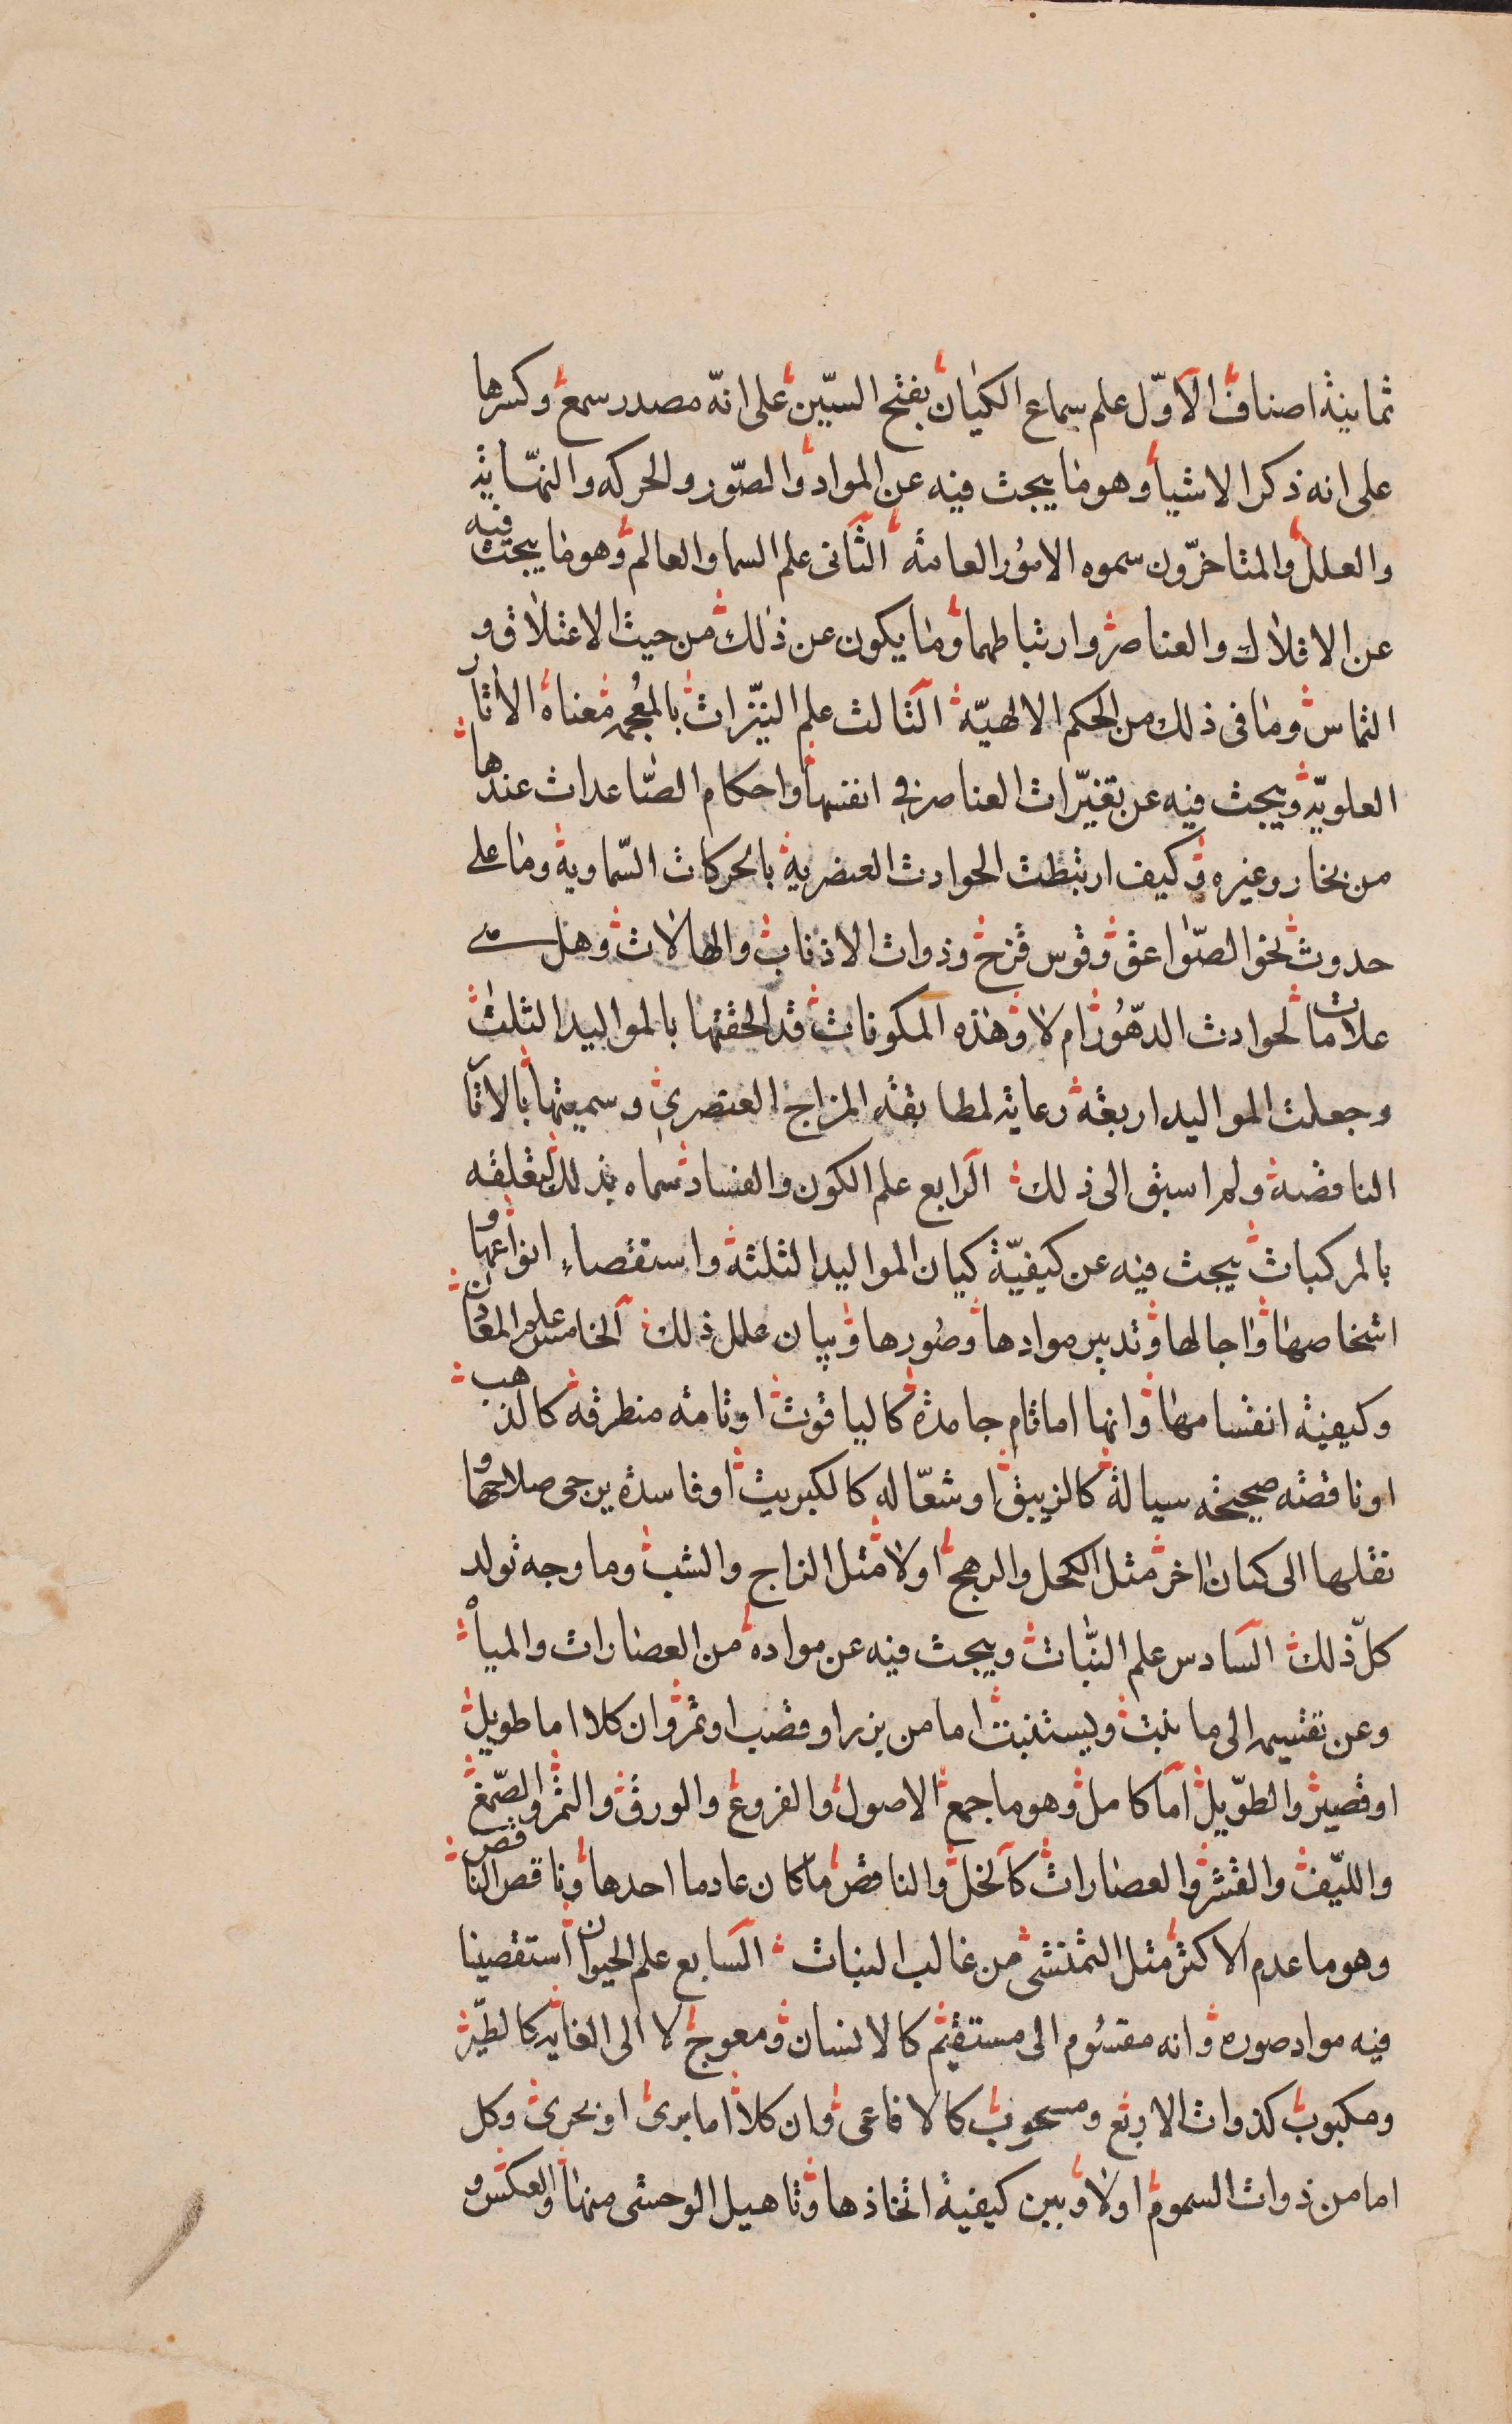 ثمانية اصناف الاوّل علم سماع الكيان بفتح السّين على انّه مصدر سمع وكسرها
على انه ذكر الاشيا وهو ما يبحث فيه عن المواد والصّور والحركه والنهّاية
والعلل والمتاخرّون سموه الامور العامة الثانى علم السما والعالم وهو ما يبحث فيه
عن الافلاك والعناصر وارتباطهما وما يكون عن ذلك من حيث الاعتلاق و
التماس وما فى ذلك من الحكم الالهيّة الثالث علم النيّزات بالمعجمه معناه الاثار
العلويّه ويبحث فيه عن تغيّرات العناصر فى انفسها واحكام الصّاعدات عندها
من بخار وغيره وكيف ارتبطت الحوادث العنصرية بالحركات السّماوية وما على
حدوث نحو الصّواعق وقوس قزح وذوات الاذناب والهالات وهل هى
علامات لحوادث الدّهور ام لا وهذه المكونات قد الحقتها بالمواليد الثلث
وجعلت المواليد اربعة رعاية لمطابقة المزاج العنصرى وسميتها بالاثا
الناقصة ولم اسبق الى ذلك الرابع علم الكون والفساد سماه بذلك لتعلقه
بالمركبات يبحث فيه عن كيفيّة كيان المواليد الثلثة واستقصاء انواعها و
اشخاصها واجالها وتدبير موادها وصورها وبيان علل ذلك الخامس علم المعادن
وكيفية انقسامها وانها اما تام جامدة كالياقوت او تامة منطرقة كالذهب
او ناقصة صحيحة سيالة كالزيبق او شعّاله كالكبريت او فاسدة يرجى صلاحها و
نقلها الى كيان اخر مثل الكحل والرهج اولا مثل الزاج والشب وما وجه تولد
كلّ ذلك السادس علم النّبات ويبحث فيه عن مواده من العصارات والمياه
وعن تقسيمه الى ما ينبت ويستنبت اما من بزر او قضب او ثمر وان كلا اما طويل
او قصير والطوّيل اما كامل وهو ما جمع الاصول والفروع والورق والثمر والصّمغ
والليّف والقشر والعصارات كالنخل والناقص ما كان عادما احدها وناقص الناقص
وهو ما عدم الاكثر مثل التمتشى من غالب النبات السابع علم الحيوان استقصينا
فيه مواد صوره وانه مقسوم الى مستقيم كالانسان ومعوج لا الى الغايه كالطيّر
ومكبوب كذوات الاربع ومسحوب كالافاعى وان كلا اما برى او بحرى وكل
اما من ذوات السموم اولا وبين كيفية اتخاذها وتاهيل الوحشى منها والعكس و